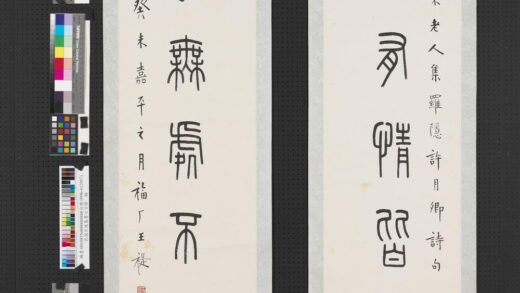 老人集羅隱許月卿詩句
有情皆
無處不
癸未嘉平之月福厂王禔